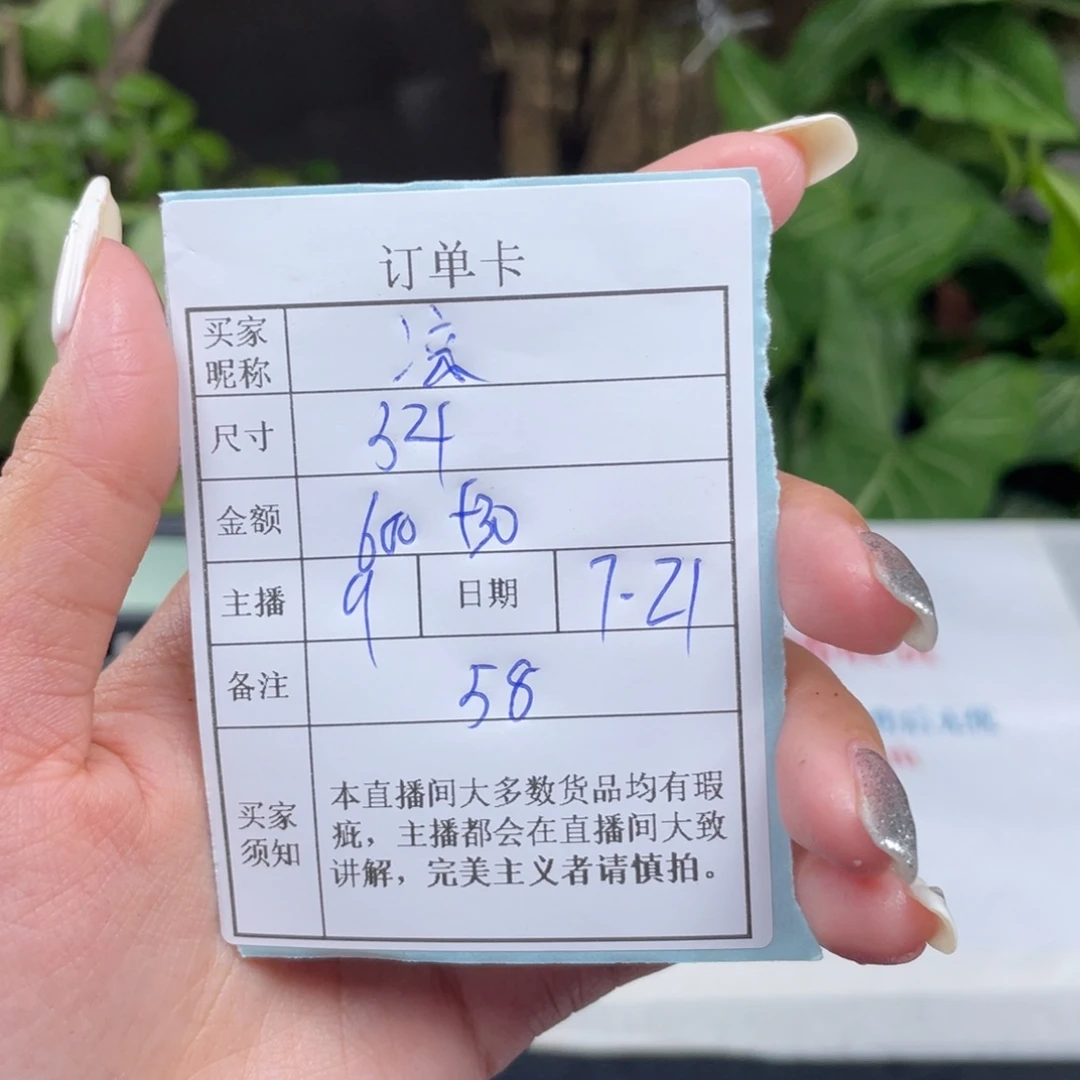 订单卡
买家
昵称
尺寸
金额 600 +30
主播 9 日期 7-21
备注 58
买家
须知
本直播间大多数货品均有瑕
疵，主播都会在直播间大致
讲解，完美主义者请慎拍。